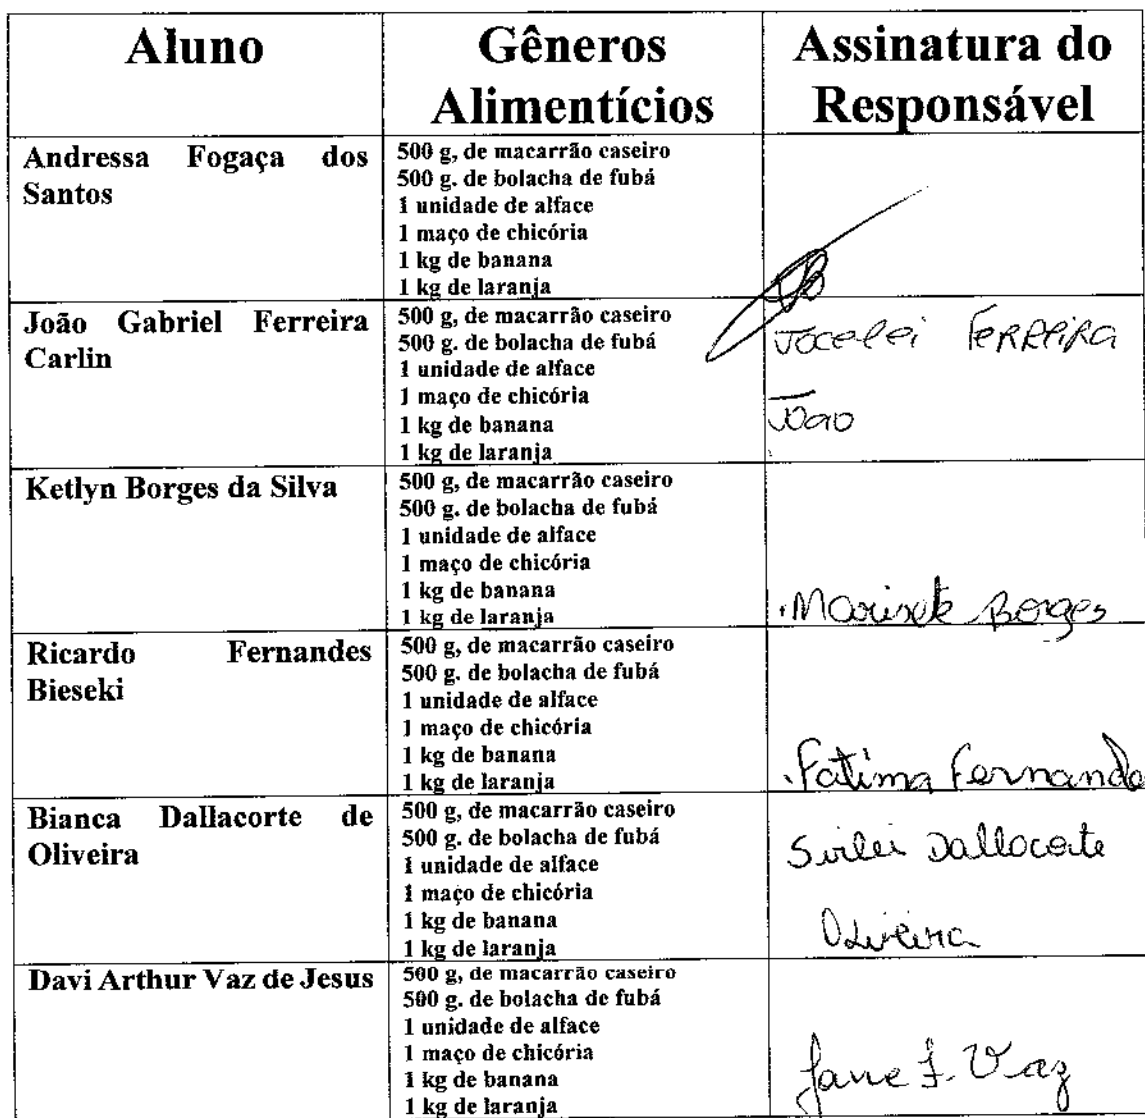 Aluno
Gêneros
Alimentícios
Assinatura do
Responsável
Andressa Fogaça dos
Santos
500 g, de macarrão caseiro
500 g. de bolacha de fubá
1 unidade de alface
1 maço de chicória
1 kg de banana
1 kg de laranja
João Gabriel Ferreira
Carlin
500 g, de macarrão caseiro
500 g. de bolacha de fubá
1 unidade de alface
1 maço de chicória
1 kg de banana
1 kg de laranja
Jocelei Ferreira
João
Ketlyn Borges da Silva
500 g, de macarrão caseiro
500 g. de bolacha de fubá
1 unidade de alface
1 maço de chicória
1 kg de banana
1 kg de laranja
Marisete Borges
Ricardo Fernandes
Bieseki
500 g, de macarrão caseiro
500 g. de bolacha de fubá
1 unidade de alface
1 maço de chicória
1 kg de banana
1 kg de laranja
Fatima Fernanda
Bianca Dallacorte de
Oliveira
500 g, de macarrão caseiro
500 g. de bolacha de fubá
1 unidade de alface
1 maço de chicória
1 kg de banana
1 kg de laranja
Sirlei Dallacorte
Oliveira
Davi Arthur Vaz de Jesus
500 g, de macarrão caseiro
500 g. de bolacha de fubá
1 unidade de alface
1 maço de chicória
1 kg de banana
1 kg de laranja
Jane F. Vaz